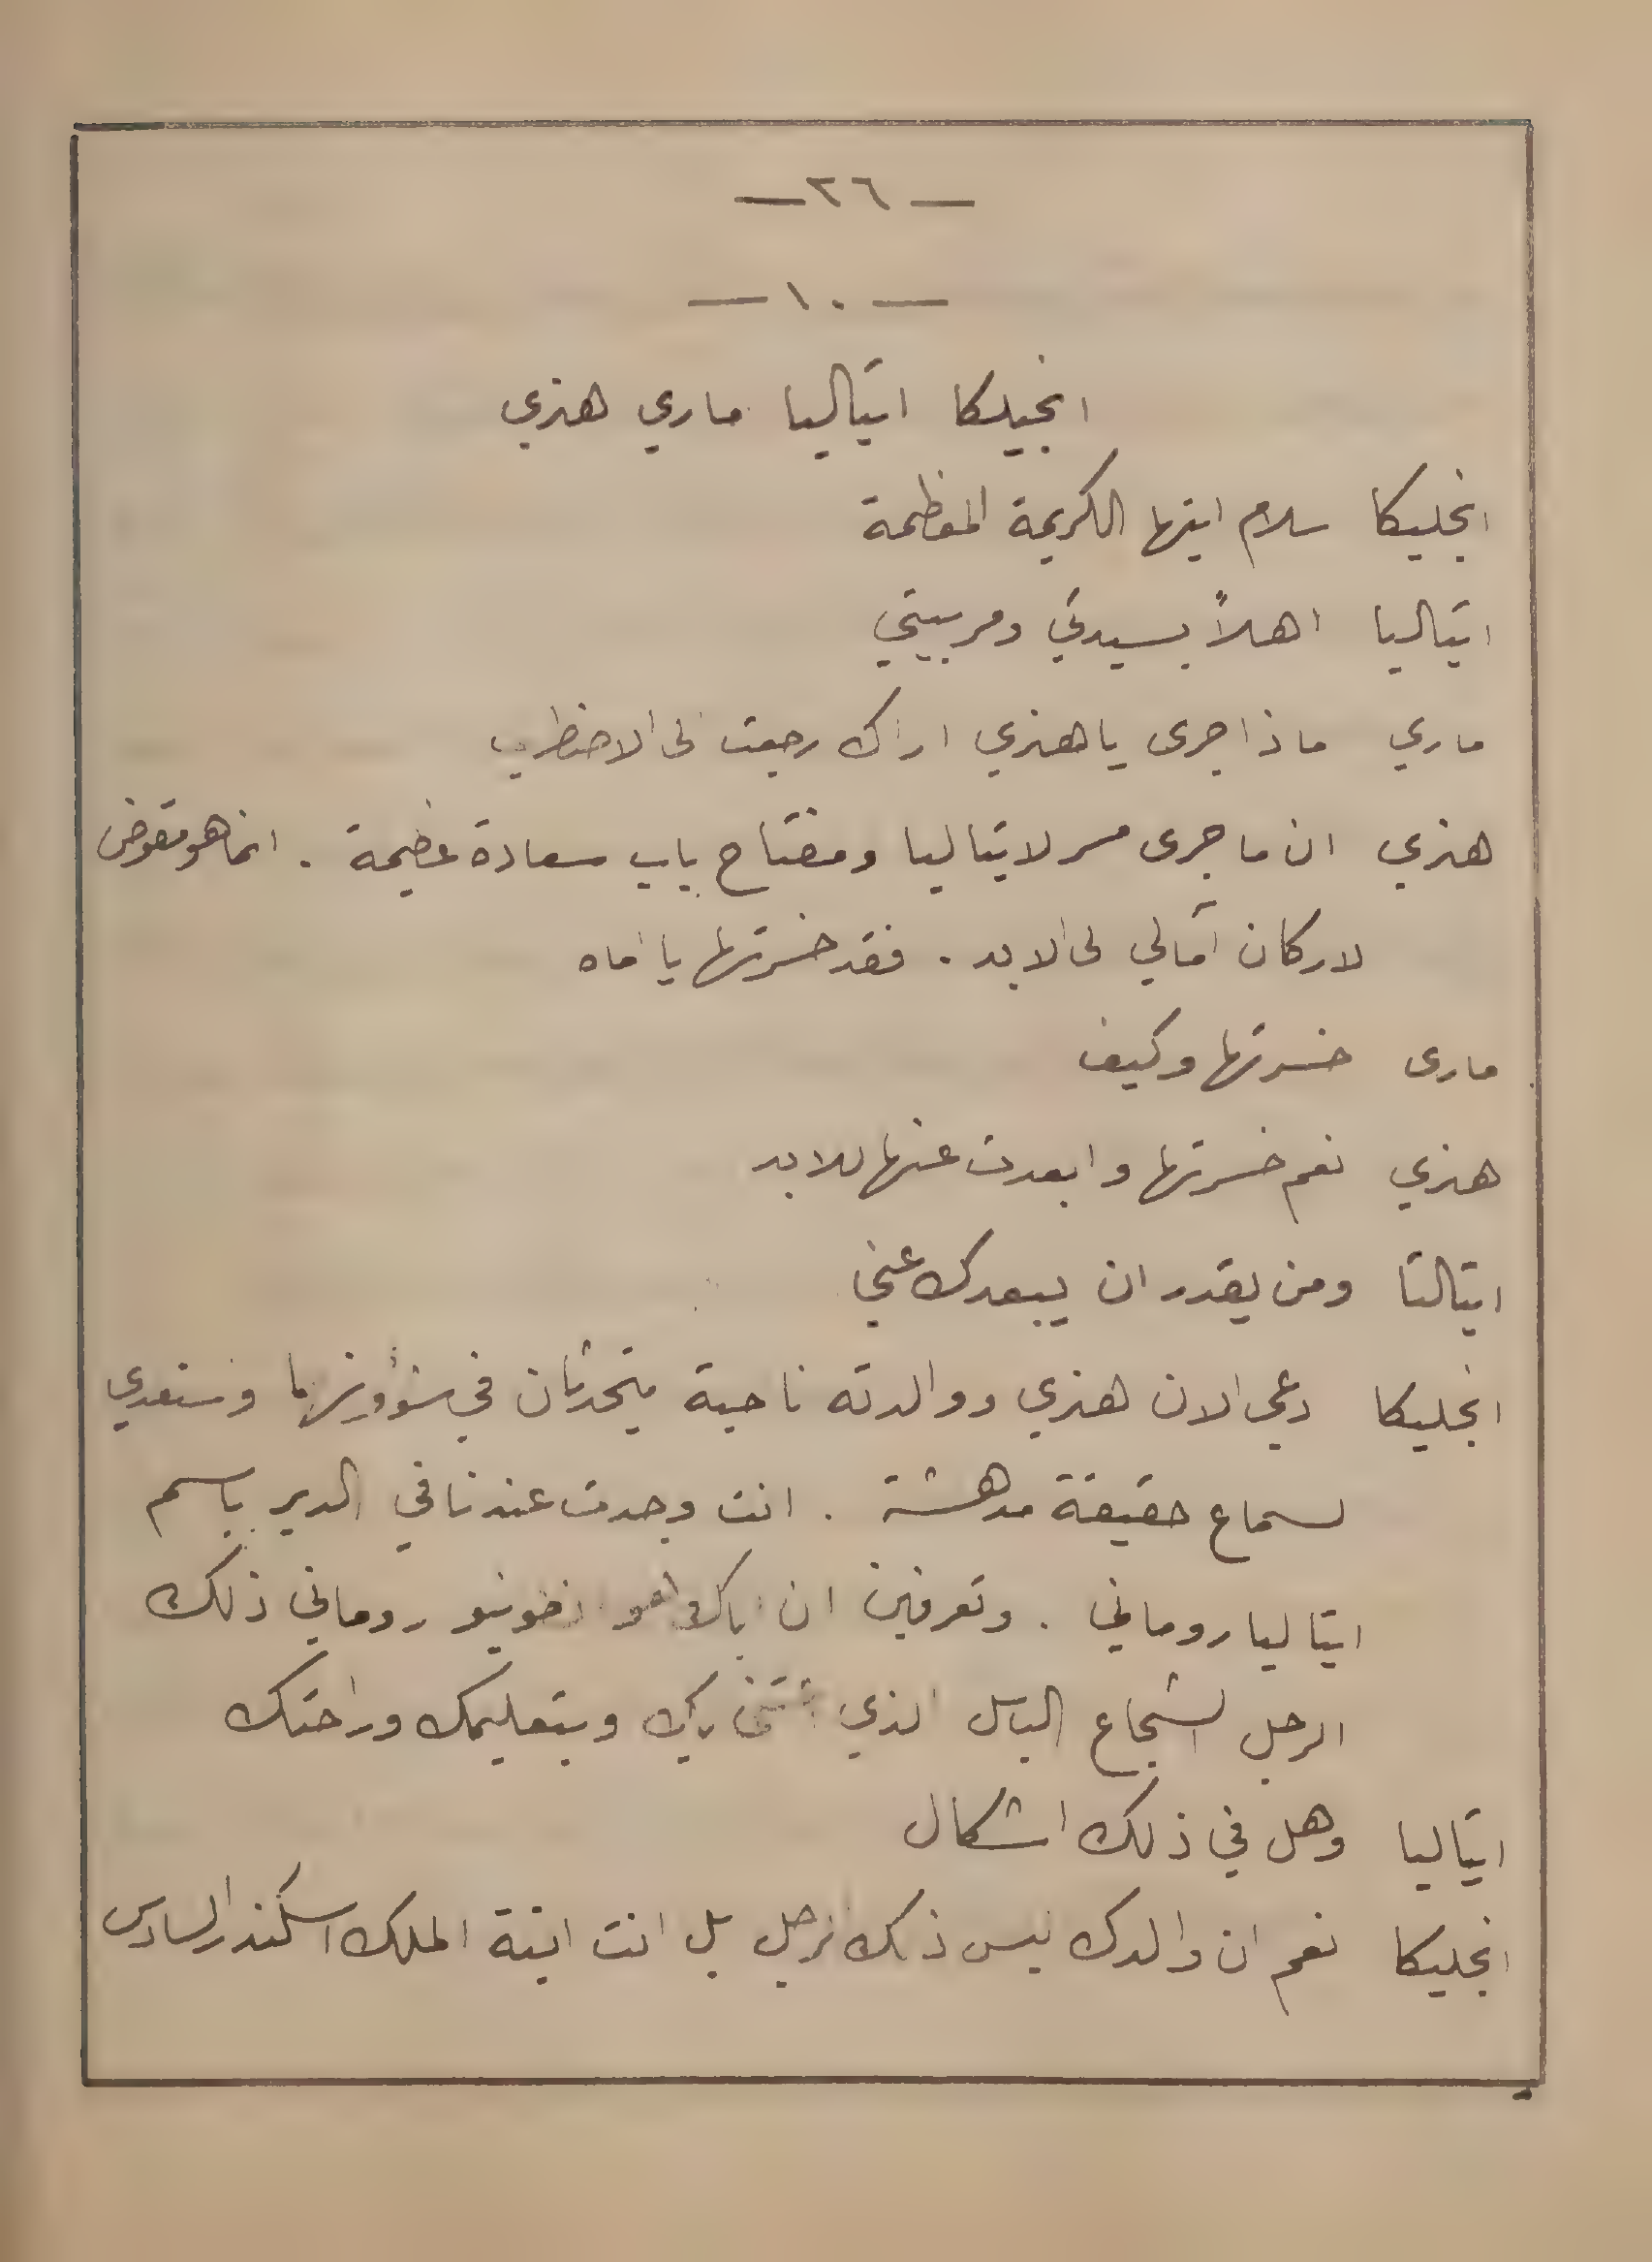 — ٢٦ —
— ١٠ —
انجيليكا ايتاليا ماري هنري
انجليكا سلام ايتها الكريمة المعظمة
ايتاليا اهلاً بسيدتي ومربيتي
ماري ماذا جرى يا هنري اراك رجعت الى الاضطراب
هنري ان ما جرى مسر لايتاليا ومفتاح باب سعادة عظيمة . انما هو مقوض
لاركان آمالي الى الابد . فقد خسرتها يا اماه
مارى خسرتها وكيف
هنري نعم خسرتها وابعدت عنها للابد
ايتاليا ومن يقدر ان يبعدك عني
انجليكا دعي الان هنري ووالدته ناحية يتحدثان في شؤونهما واستعدي
لسماع حقيقة مدهشة . انت وجدت عندنا في الدير باسم
ايتاليا روماني . وتعرفين ان اباك هو انطونيو روماني ذلك
الرجل الشجاع الباسل الذي بك وبتعليمك وراحتك
ايتاليا وهل في ذلك اشكال
انجليكا نعم ان والدك ليس ذلك الرجل بل انت ابنة الملك اسكندر السادس